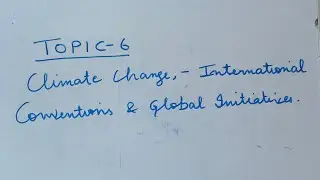 TOPIC-6
Climate Change,- International
Conventions & Global Initiatives.